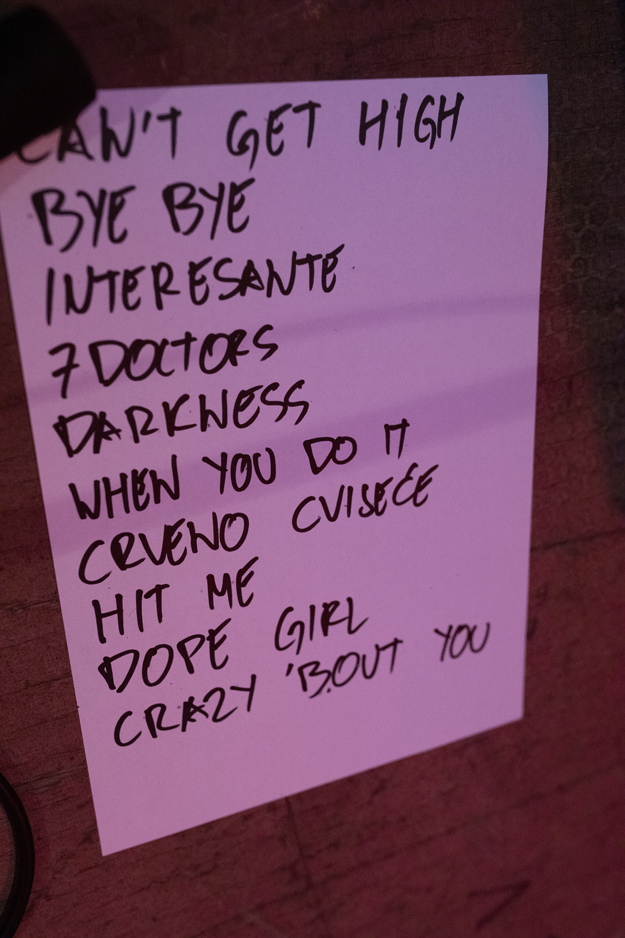 CAN'T GET HIGH
BYE BYE
INTERESANTE
7 DOCTORS
DARKNESS
WHEN YOU DO IT
CRVENO CVISEĆE
HIT ME
DOPE GIRL
CRAZY 'BOUT YOU